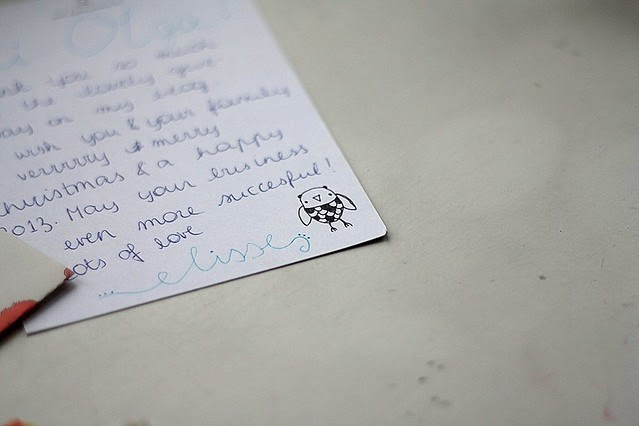 Olga
you so much
the lovely give
on my blog
wish you & your family
verrrrry merry
christmas & a happy
2013. May your business
even more succesful!
Lots of love
...elisse